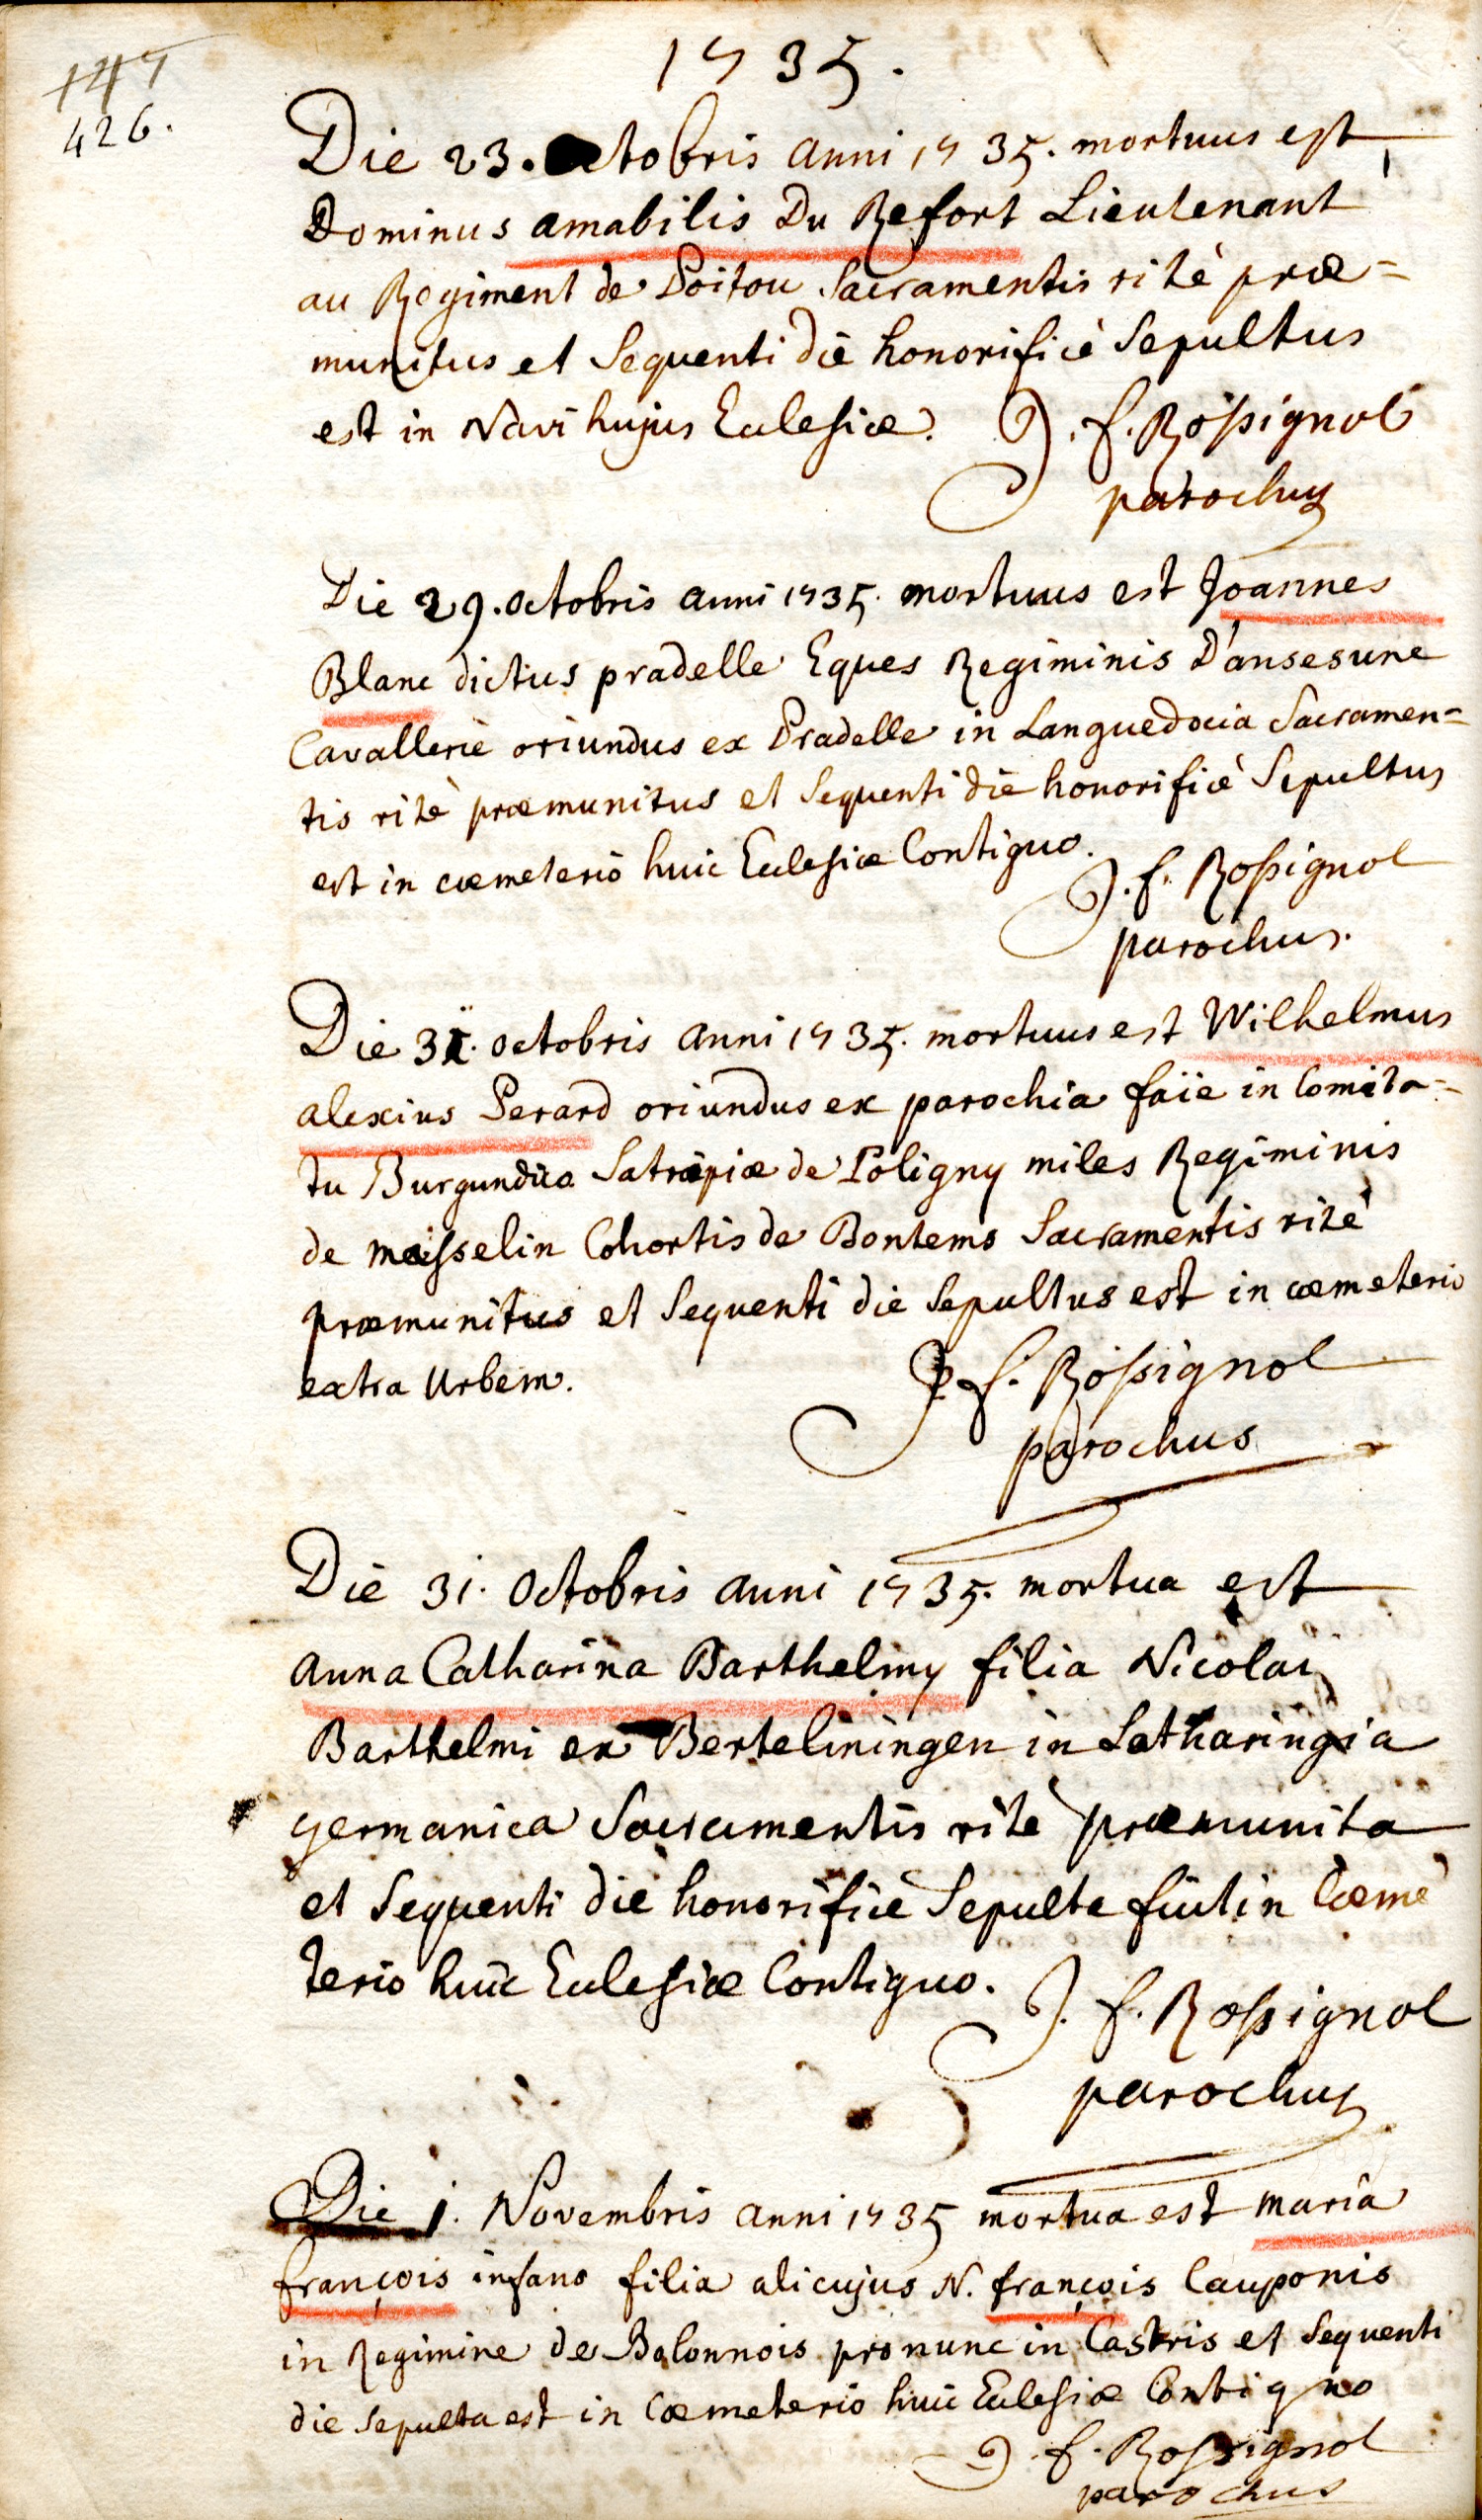 1735.
147
426.
Die 23. Octobris anni 1735. mortuus est
Dominus amabilis Du Refort Lieutenant
au Regiment de Poitou Sacramentis ritè præ=
munitus et Sequenti die honorificè Sepultus
est in Navi hujus Ecclesiæ. J. f. Rossignol
parochus
Die 29. octobris anni 1735. mortuus est Joannes
Blanc dictus pradelle Eques Regiminis D'ansesune
Cavallerie oriundus ex Pradelle in Languedocia Sacramen=
tis ritè præmunitus et Sequenti die honorificè Sepultus
est in cœmeterio huic Ecclesiæ Contiguo.
J. f. Rossignol
parochus.
Die 31. octobris anni 1735. mortuus est Wilhelmus
alexius Perard oriundus ex parochia faïe in Comita=
tu Burgundiæ Satrapiæ de Poligny miles Regiminis
de meisselin Cohortis de Bontems Sacramentis ritè
præmunitus et Sequenti die Sepultus est in cœmeterio
extra Urbem. J. f. Rossignol
parochus
Die 31. Octobris anni 1735. mortua est
anna Catharina Barthelmy filia Nicolai
Barthelmi ex Berteliningen in Lotharingia
germanica Sacramentis ritè præmunita
et Sequenti die honorificè Sepulta fuit in Cœme
terio huic Ecclesiæ Contiguo. J. f. Rossignol
parochus
Die 1. Novembris anni 1735 mortua est maria
françois infans filia alicujus N. françois Cauponis
in Regimine de Bolonnois pro nunc in Castris et Sequenti
die Sepulta est in Cœmeterio huic Ecclesiæ Contiguo
J. f. Rossignol
parochus